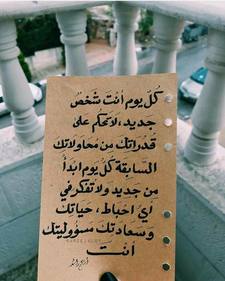 كل يوم أنت شخص
جديد، لا تحكم على
قدراتك من محاولاتك
السابقة كل يوم ابدأ
من جديد ولا تفكر في
أي احباط، حياتك
وسعادتك مسؤوليتك
أنت